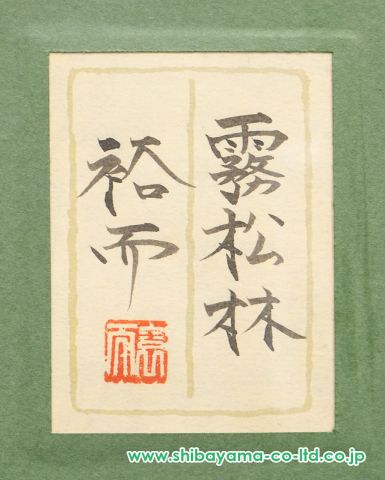 霧松林
裕而
www.shibayama-co-ltd.co.jp